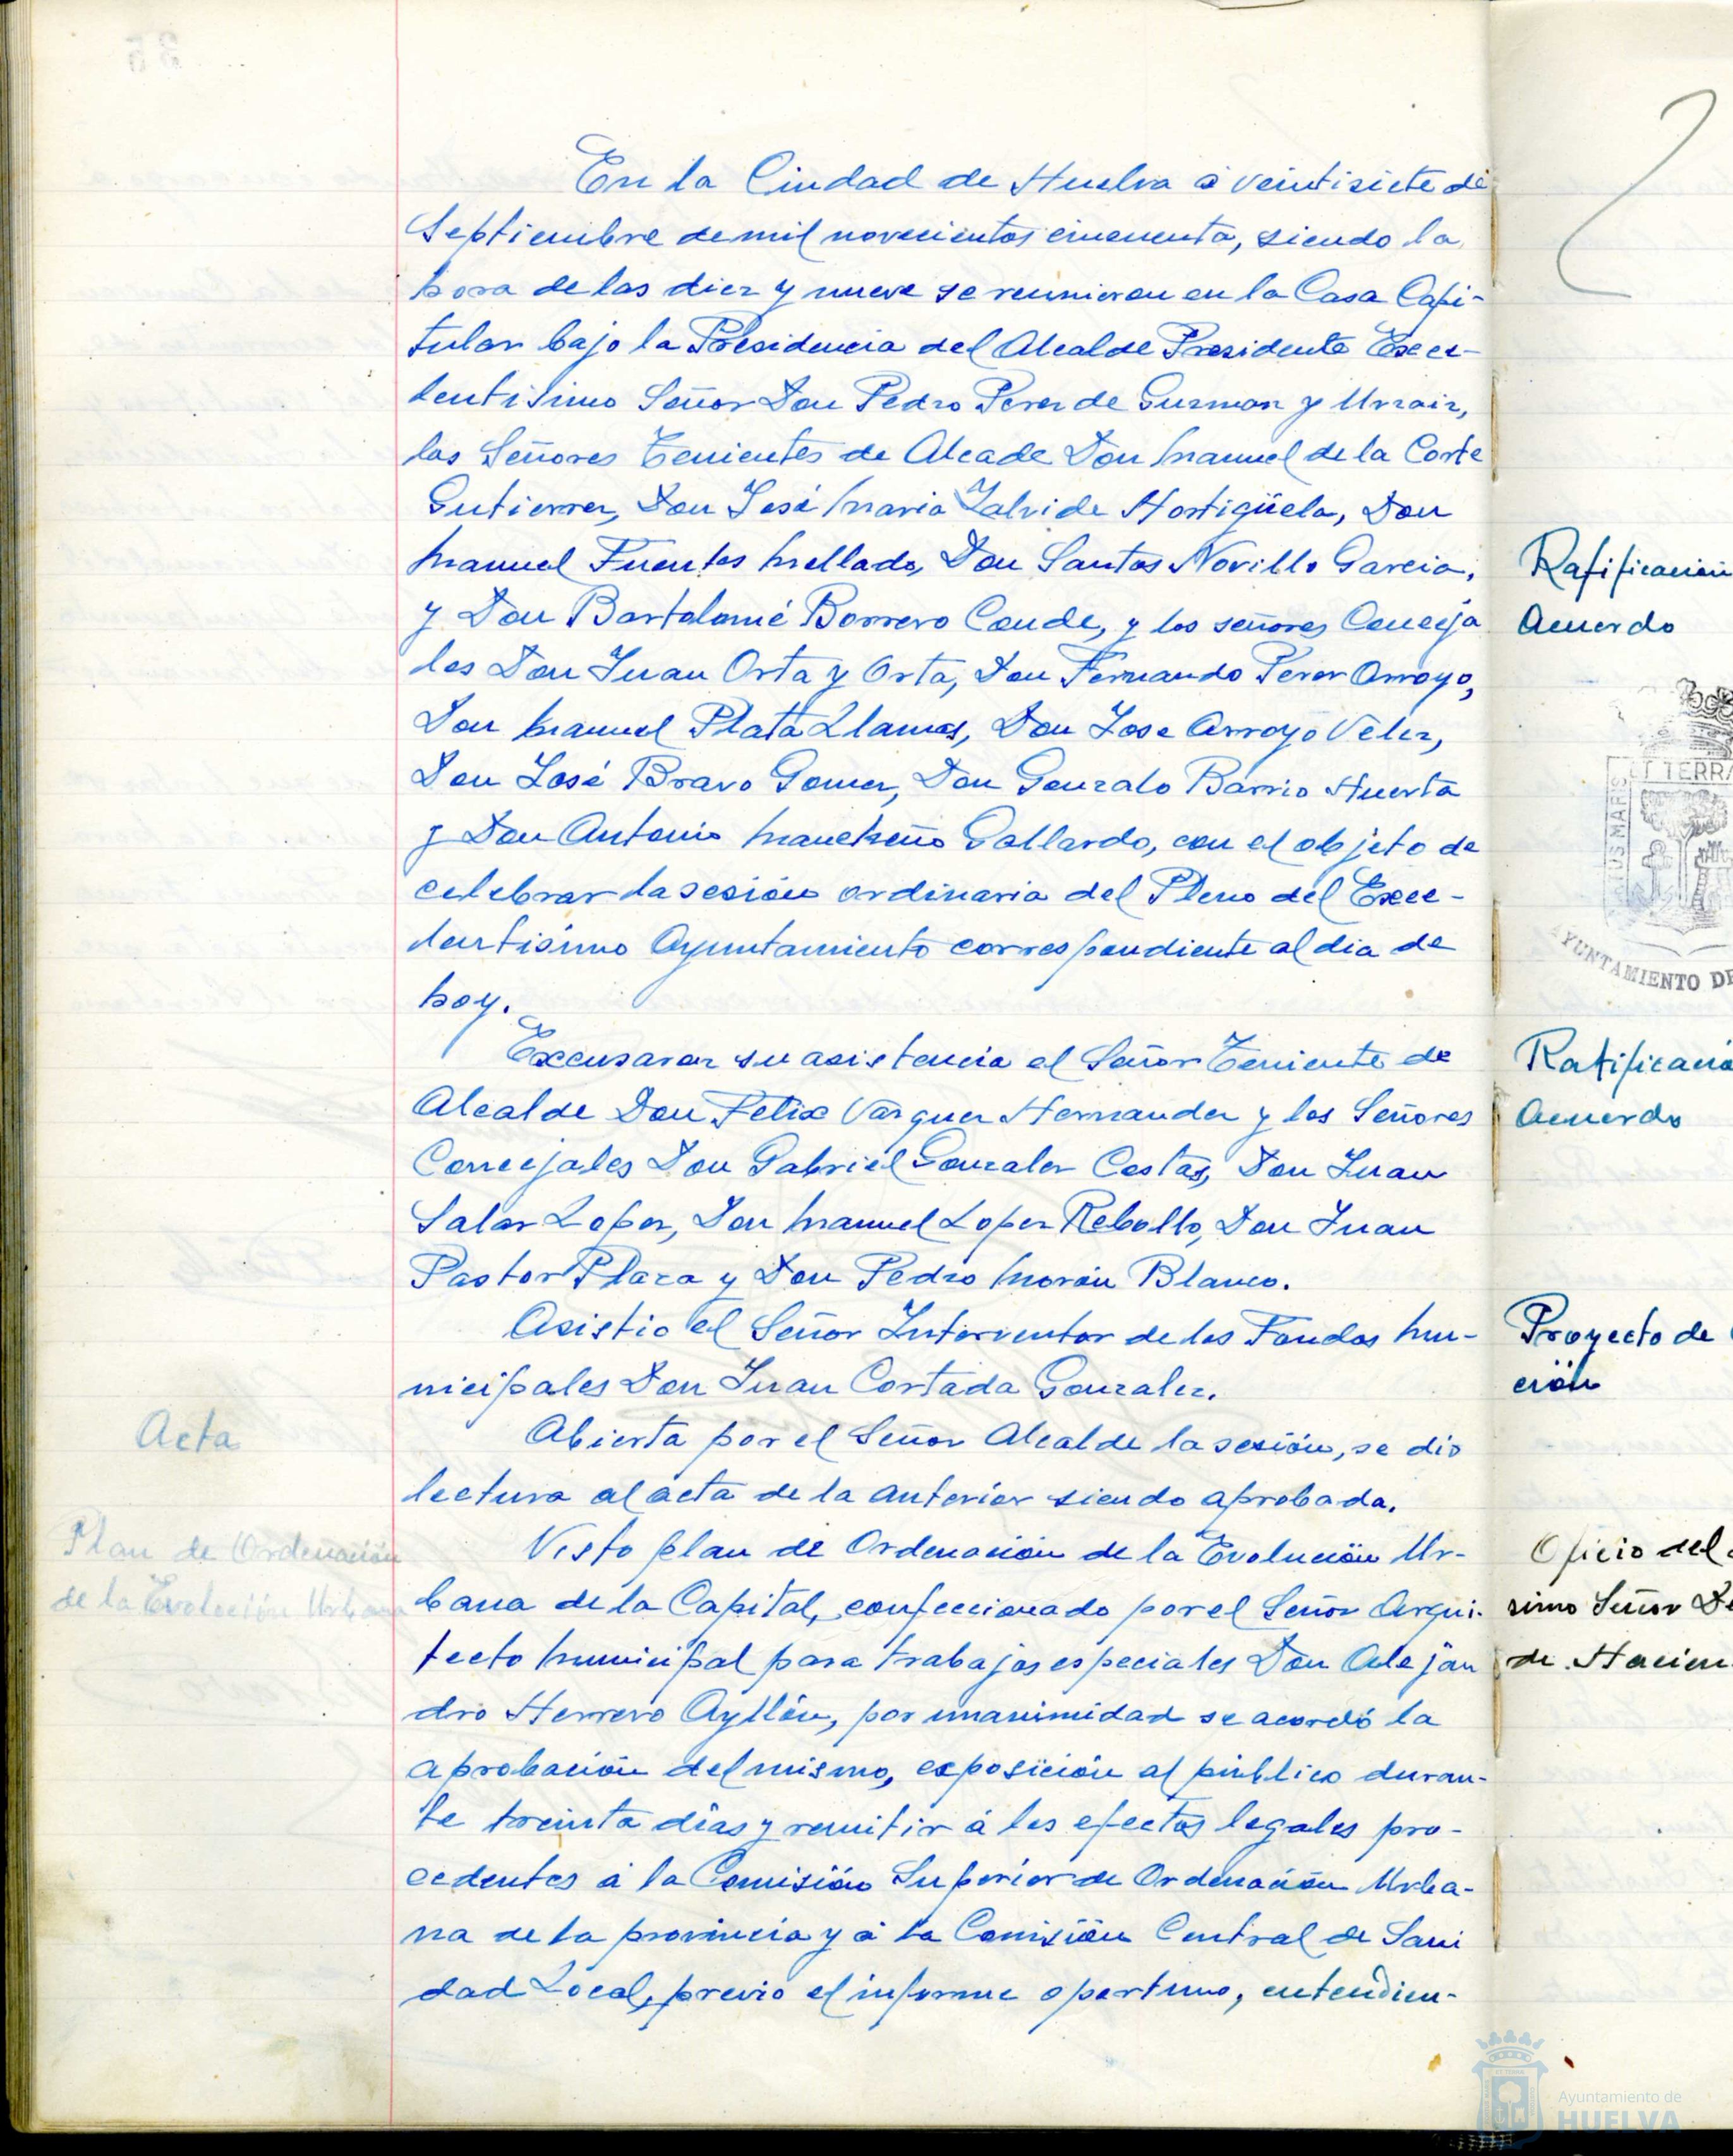 En la Ciudad de Huelva á veintisiete de
Septiembre de mil novecientos cincuenta, siendo la
hora de las diez y nueve se reunieron en la Casa Capi-
tular bajo la Presidencia del Alcalde Presidente Exce-
lentisimo Señor Don Pedro Perez de Guzman y Urzaiz,
los Señores Tenientes de Alcade Don Manuel de la Corte
Gutierrez, Don José Maria Zalvide Hortigüela, Don
Manuel Fuentes Mellado, Don Santos Novillo Garcia,
y Don Bartolomé Borrero Conde, y los señores Conceja
les Don Juan Orta y Orta, Don Fernando Perez Arroyo,
Don Manuel Plata Llamas, Don Jose Arroyo Vélez,
Don José Bravo Gomez, Don Gonzalo Barrio Huerta
y Don Antonio Mancheño Gallardo, con el objeto de
celebrar la sesión ordinaria del Pleno del Exce-
lentisimo Ayuntamiento correspondiente al dia de
hoy.
Excusaron su asistencia el Señor Teniente de
Alcalde Don Felix Vázquez Hernandez y los Señores
Concejales Don Gabriel Gonzalez Costas, Don Juan
Salas Lopez, Don Manuel Lopez Rebollo, Don Juan
Pastor Plaza y Don Pedro Morón Blanco.
Asistio el Señor Interventor de los Fondos Mu-
nicipales Don Juan Cortada Gonzalez.
Acta
Abierta por el Señor Alcalde la sesión, se dio
lectura al acta de la anterior siendo aprobada.
Plan de Ordenación
de la Evolución Urbana
Visto plan de Ordenación de la Evolución Ur-
bana de la Capital, confeccionado por el Señor Arqui-
tecto Municipal para trabajos especiales Don Alejan
dro Herrero Ayllón, por unanimidad se acordó la
aprobación del mismo, exposición al público duran-
te treinta dias y remitir á los efectos legales pro-
cedentes á la Comisión Superior de Ordenación Urba-
na de la provincia y á la Comisión Central de Sani
dad Local, previo el informe oportuno, entendien-
Ratificación
Acuerdo
ET TERRA
PORTUS MARIS
AYUNTAMIENTO DE
Ratificació
Acuerdo
Proyecto de
ción
Oficio del
simo Señor De
de Hacien
Ayuntamiento de
HUELVA